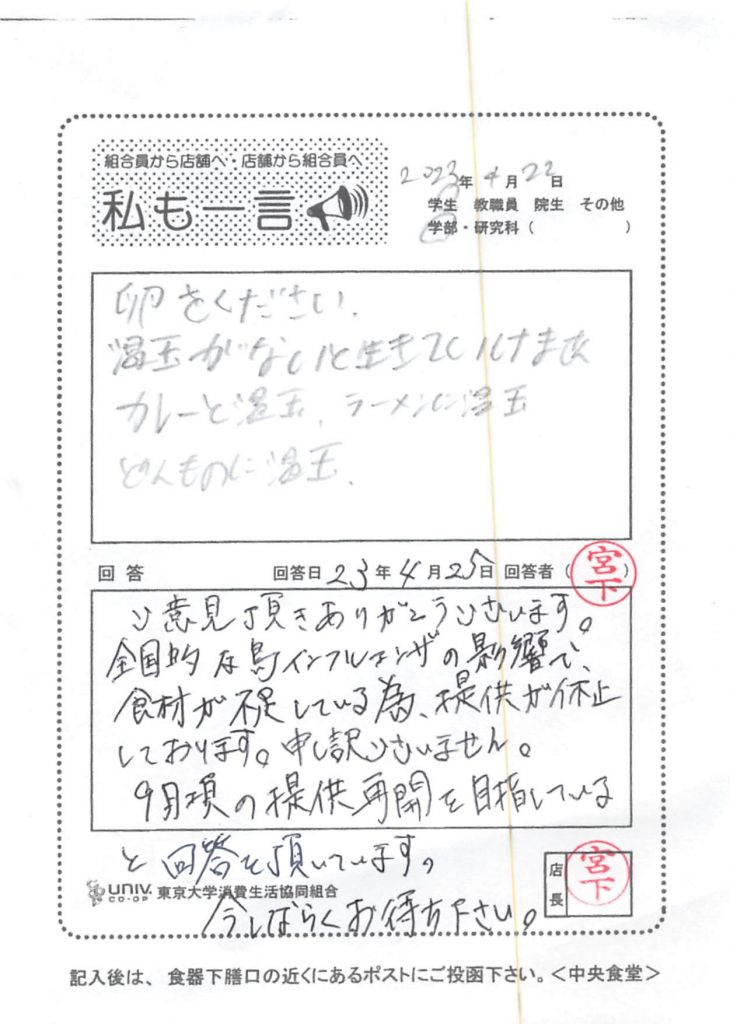 組合員から店舗へ・店舗から組合員へ
私も一言
2023年4月22日
学生 教職員 院生 その他
学部・研究科（ ）
卵をください.
温玉がないと生きていけません
カレーと温玉、ラーメンに温玉
どんものに温玉.
回答 回答日23年4月25日 回答者（宮下）
ご意見頂きありがとうございます。
全国的な鳥インフルエンザの影響で、
食材が不足している為、提供が休止
しております。申し訳ございません。
9月頃の提供再開を目指している
と回答を頂いています。
UNIV. CO-OP 東京大学消費生活協同組合
店長 宮下
今しばらくお待ち下さい。
記入後は、食器下膳口の近くにあるポストにご投函下さい。＜中央食堂＞